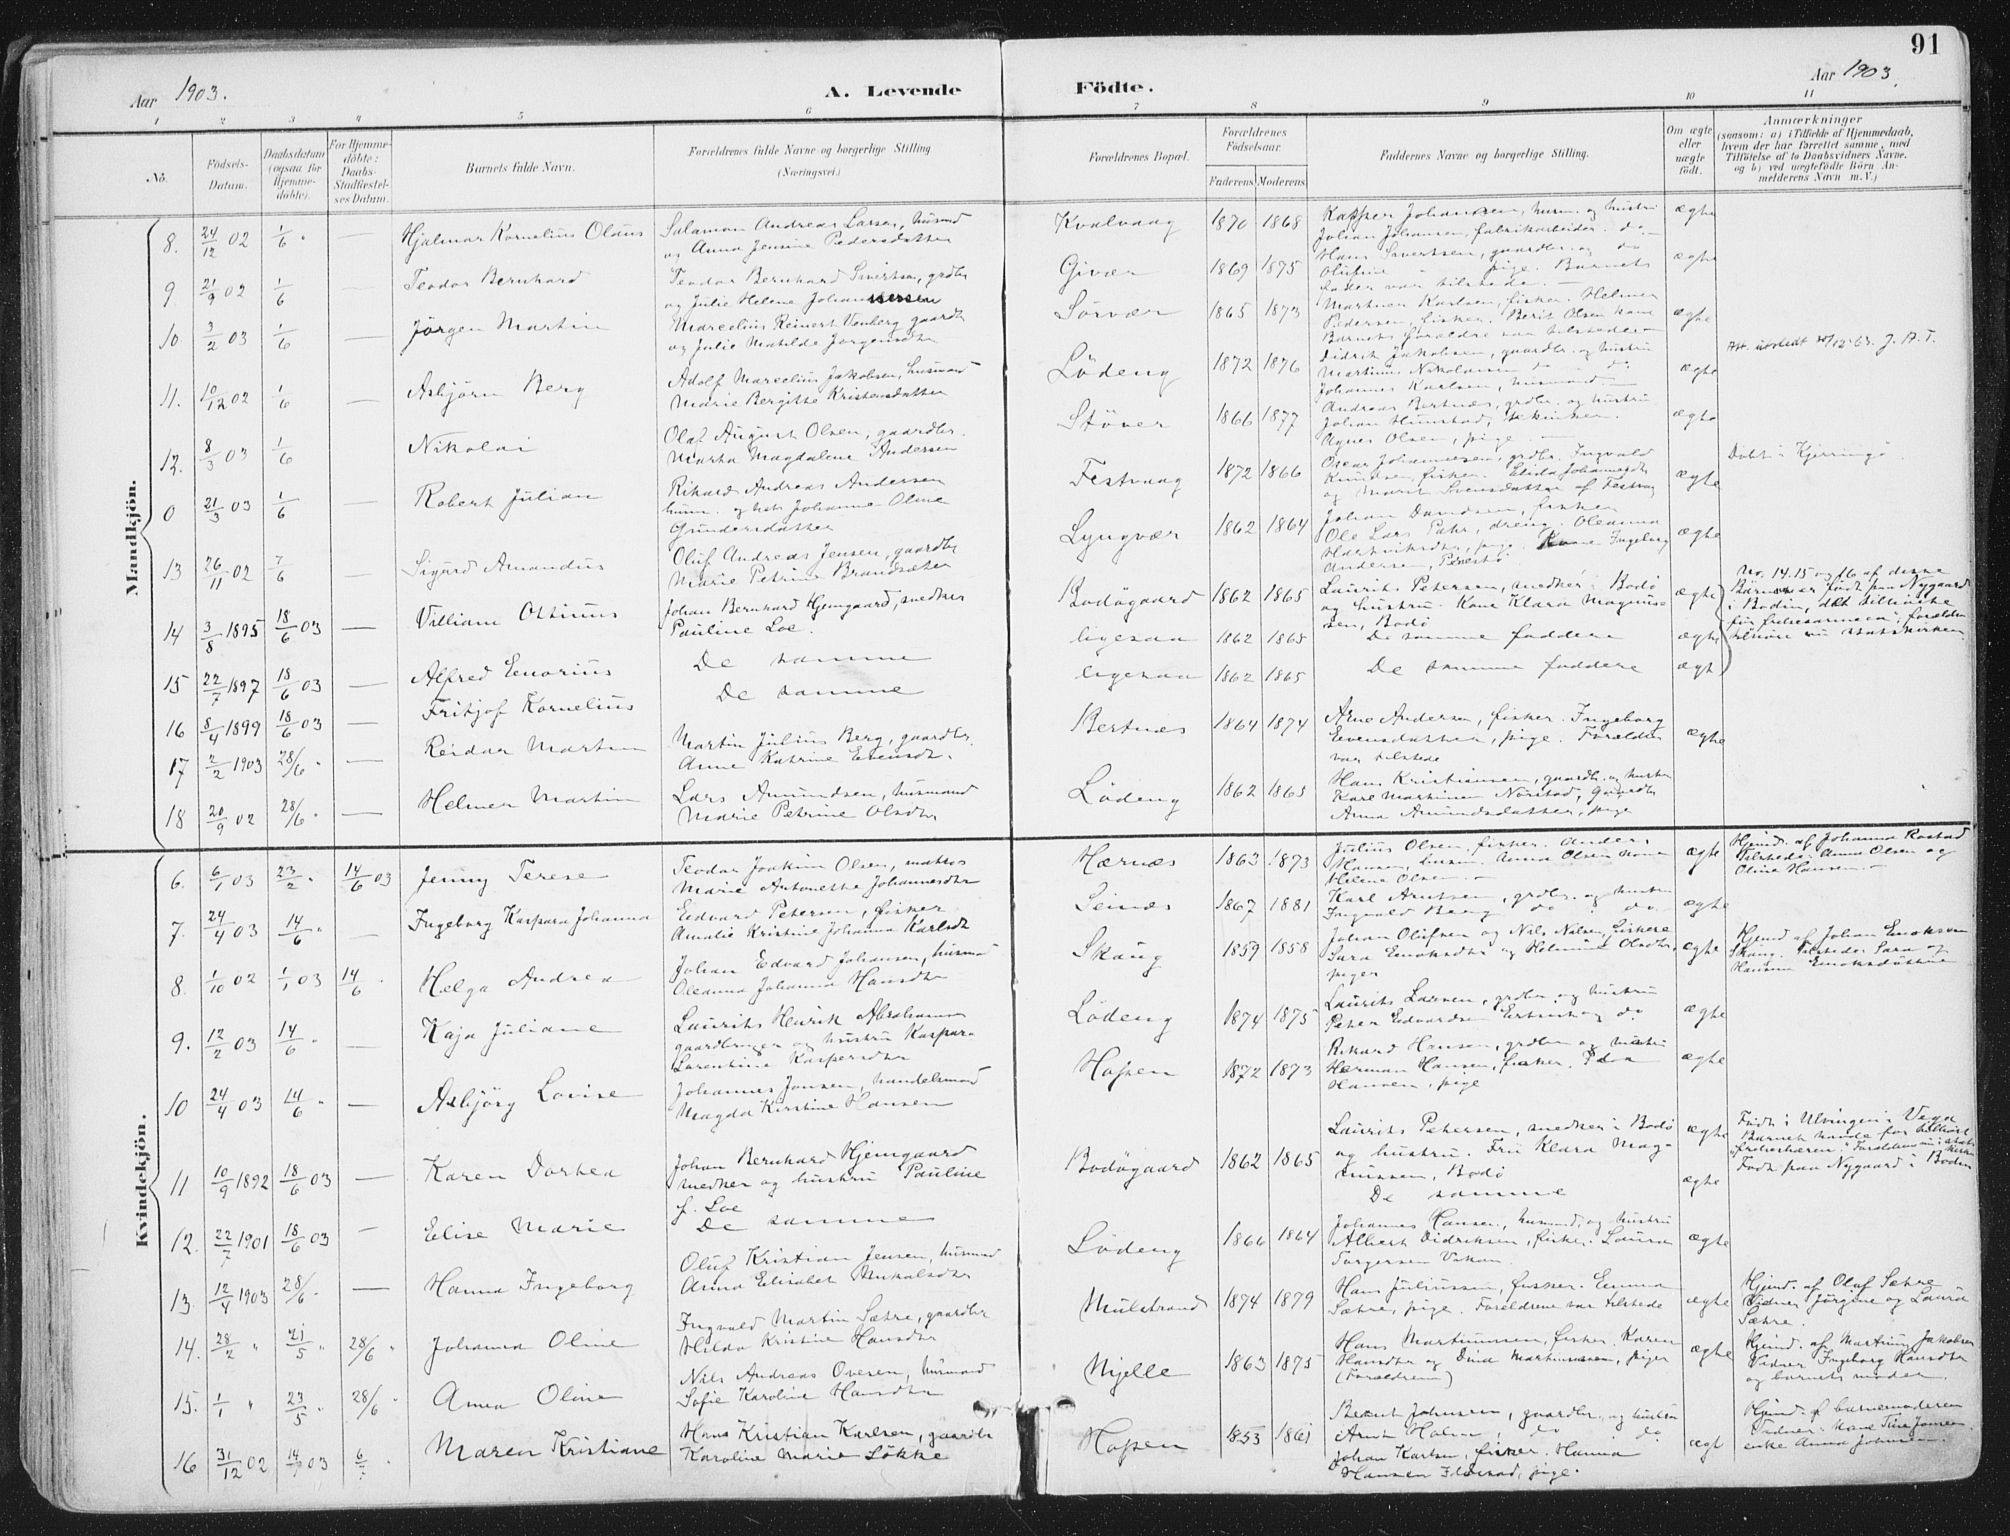 91
Aar 1903.
A. Levende Födte.
Aar 1903.
1 2 3 4 5 6 7 8 9 10 11
No.
Födsels-Datum.
Daabsdatum (ogsaa for Hjemme-döbte).
For Hjemme-döbte: Daabs-Stadfæstel-ses Datum.
Barnets fulde Navn.
Forældrenes fulde Navne og borgerlige Stilling (Næringsvei.)
Forældrenes Bopæl.
Forældrenes Födselsaar.
Faderens Moderens
Faddernes Navne og borgerlige Stilling.
Om ægte eller uægte födt.
Anmærkninger
(saasom: a) i Tilfælde af Hjemmedaab, hvem der har forrettet samme, med Tilföielse af to Daabsvidners Navne, og b) ved uægtefödte Börn Anmelderens Navn m. V.)
Mandkjön.
8. 24/12 02 1/6 " — Hjalmar Kornelius Olaus
Salamon Andreas Larsen, husmd
og Anna Jensine Pedersdatter
Kvalvaag 1870 1868
Kasper Johansen, husm. og hustru
Johan Johansen, fabrikarbeider do
ægte
9 21/9 02 1/6 — Teodor Bernhard
Teodor Bernhard Sivertsen, grdbr
og Julie Helene Johannessen
Givær 1869 1875
Hans Sivertsen, gaardbr. og do
Olufine pige. Barnets
fader var tilstede. —
ægte
10 3/2 03 1/6 — Jörgen Martin
Marcelius Reinert Venberg gaardb
og Julie Matilde Jörgensdtr
Sörvær 1865 1873
Martner Karlsen, fisker. Helmer
Pedersen, fisker. Berit Olsen kone
Barnets forældre var tilstede —
ægte
11. 10/12 02 1/6 — Asbjörn Berg
Adolf Marcelius Jakobsen, husmand
Marie Bergitte Kristensdatter
Lödeng 1872 1876
Didrik Jakobsen, gaardbr. og hustru
Martinus Nikolaisen do do
Johannes Karlsen, husmand —
ægte
Att. utstedt 10/12-63. J. A. T.
12. 8/3 03 1/6 Nikolai
Olaf August Olsen, gaardbr.
Marta Magdalene Andersen
Stöver 1866 1877
Andreas Bertnæs, grdbr. og hustru
Johan Hunstad,
Agnes Olsen, pige. —
ægte
0 21/3 03 1/6 — Robert Julian
Rikard Andreas Andersen
husm. og hst. Johanne Oline
Gundersdatter
Festvaag 1872 1866
Oscar Johannesen, grdbr. Ingvald
Knudsen, fisker. Elida Johannesdtr
og Marit Svensdatter af Festvag
ægte
Döbt i Kjerringö
13 26/11 02 7/6 — Sigurd Amandus
Oluf Andreas Jensen, gaardbr
Marie Petrine Brandsæter
Lyngvær 1862 1864
Johan Davidsen, fisker
Ole Lars Pahr, dreng. Oleanna
Hartviksdtr, pige. Ingeborg
Andersen,
ægte
14 3/8 1895 18/6 03 — Villiam Ottinus
Johan Bernhard Hjemgaard, snedker
Pauline Loe.
Bodögaard 1862 1865
Laurits Petersen, snedker i Bodö
og hustru. Kone Klara Magnus-
sen, Bodö
ægte
No. 14. 15 og 16 af disse
Börn er födt paa Nygaard
i Bodin, det tilhörte
för frelsesarmeen; forældr.
tilhöre nu statskirken
15 22/7 1897 18/6 03 — Alfred Enorius
De samme
ligesaa 1862 1865
De samme faddere
ægte
16 8/4 1899 18/6 03 — Fritjof Kornelius
De samme
ligesaa 1862 1865
De samme faddere
ægt
17 2/2 1903 28/6 " — Reidar Martin
Martin Julius Berg, gaardbr.
Anne Katrine Evensdt.
Bertnæs 1864 1874
Arne Andersen, fisker. Ingeborg
Evensdatter, pige. Forældre
var tilstede
ægte
18 20/9 02 28/6 " — Helmer Martin
Lars Amundsen, husmand
Marie Petrine Olsdtr
Lödeng 1862 1865
Hans Kristiansen, gaardbr. og hustru
Karl Martinus Norstad, gaardbr
Anna Amundsdatter, pige
Kvindekjön.
6. 6/1 03 23/2 " 14/6 03 Jenny Terese
Teodor Joakim Olsen, matros
Marie Antonette Johannesdtr
Hærnæs 1863 1873
Julius Olsen, fisker. Anders
Hansen, husm. Anna Olsen kone
Helene Olsen. —
ægte
Hjmd. af Johanna Rostad
Tilstede: Anna Olsen og
Oline Hansen. —
7. 24/4 03 14/6 " — Ingeborg Kaspara Johanna
Edvard Petersen, fisker
Amalie Kristine Johanna Karlsdt
Seinæs 1867 1881
Karl Arntsen, grdbr. og hustru
Ingvald Berg do do.
ægte
8. 1/10 02 1/1 03 14/6 " Helga Andrea
Johan Edvard Johansen, husmd
Oleanna Johanna Hansdtr
Skaug 1859 1858
Johan Olufsen og Nils Nilsen, fiskere
Sara Enoksdtr og Helmine Olsdtr,
piger
ægte
Hjmd af Johan Enoksen
Skaug. Tilstede: Sara og
Hansine Enoksdatter
9. 12/2 03 14/6 " — Kaja Juliane
Laurits Henrik Abrahamsen
gaardbruger og hustru Kaspara
Lorentine Kaspersdtr
Lödeng 1874 1875
Laurits Larsen, grdbr. og hustru
Peter Edvardsen og do
ægte
10 24/4 03 14/6 " — Asbjörg Lovise
Johannes Jensen, handelsmd
Magda Kirstine Hansen
Hopen 1872 1873
Rikard Hansen, grdbr og hustru
Herman Hansen, fisker.
Hansen, pige
ægte
11 10/9 1892 18/6 03 — Karen Dortea
Johan Bernhard Hjemgaard
snedker og hustru Pauline
f. Loe
Bodögaard 1862 1865
Laurits Petersen, snedker i Bodö
og hustru. Fru Klara Mag-
nussen, Bodö
ægte
Födt i Ulvingen i Vega
Barnet havde för tilhört
"frelserhæren". Forældrene i stats-kirken
12. 22/7 1901 18/6 03 — Elise Marie
De samme
De samme
ægte
Födt paa Nygaard i Bodin
13. 12/4 1903 28/6 " — Hanna Ingeborg
Oluf Kristian Jensen, husmd
Anna Elisabet Mikalsdtr
Lödeng 1866 1864
Johannes Hansen, husmd, og hustru
Albert Didriksen, fisker. Laura
Torgersen
ægte
14. 28/2 " 21/5 " 28/6 " Johanna Oline
Ingvald Martin Sætre, gaardbr
Hilda Kristine Hansdtr
Mulstrand 1874 1879
Hans Juliussen, fisker. Emma
Sætre, pige. Forældrene var tilstede
ægte
Hjmd. af Olaf Sætre
Vidner Jörgine og Laura
Sætre.
15. 1/1 " 23/5 " 28/6 " Anna Oline
Nils Andreas Ovesen, husmand
Sofie Karoline Hansdtr
Mjelle 1863 1875
Hans Martinussen, fisker. Karen
Hansdtr og Dina Martinussen, piger
(Forældrene)
ægte
Hjmd. af Martinus Jakobsen
Vidner Ingeborg Hansdtr
og barnets moder.
16 31/12 02 03 6/7 " Maren Kristiane
Hans Kristian Karlsen, gaardbr
Karoline Marie Lökke
Hopen 1853 1861
Bernt Johnsen, gaardbr. og hustru
Arnt Holm, do do
Johan Karlsen, fisker. Hanna
Hansen pige.
ægt
Hjmd. af barnemoderen
Vidner: kone Tina Jensen
enke Anna Johnsen.